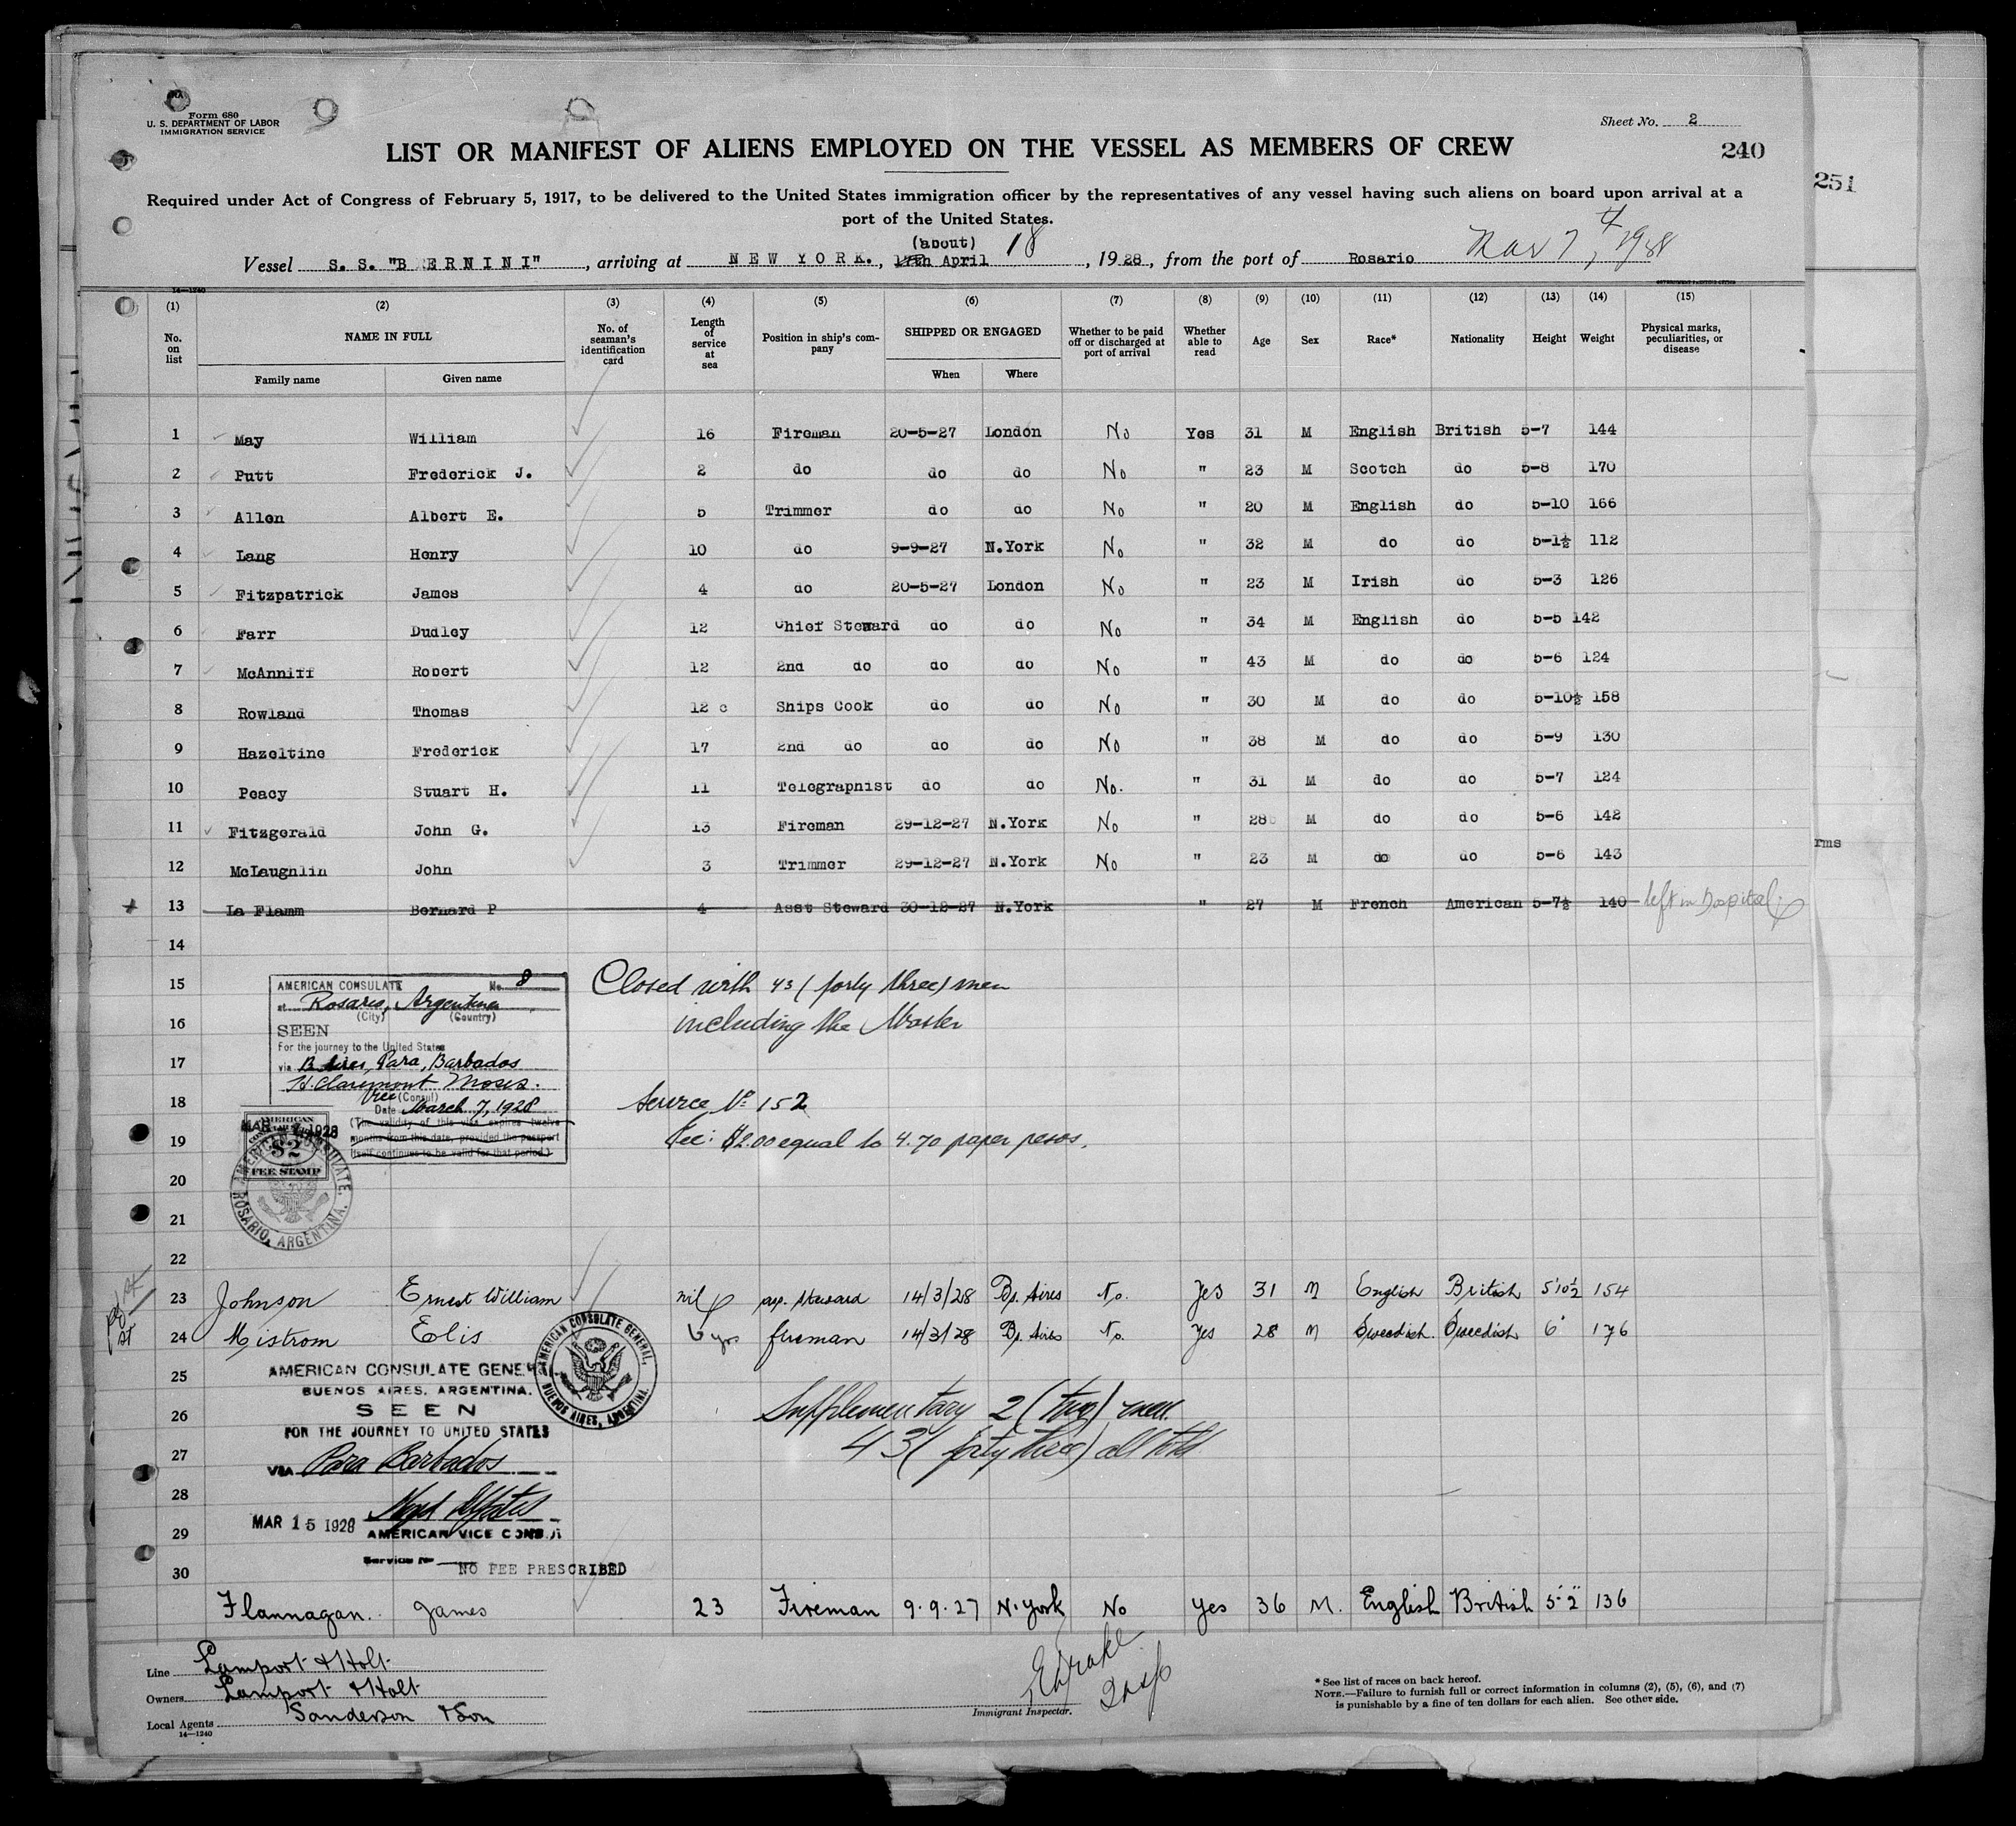 Form 680
U. S. DEPARTMENT OF LABOR
IMMIGRATION SERVICE
Sheet No. 2
LIST OR MANIFEST OF ALIENS EMPLOYED ON THE VESSEL AS MEMBERS OF CREW
240
251
Required under Act of Congress of February 5, 1917, to be delivered to the United States immigration officer by the representatives of any vessel having such aliens on board upon arrival at a
port of the United States.
(about) 18
Vessel S. S. "BERNINI", arriving at NEW YORK., 17th April, 1928, from the port of Rosario Mar 7, 1928
14—1240
(1) (2) (3) (4) (5) (6) (7) (8) (9) (10) (11) (12) (13) (14) (15)
No. on list NAME IN FULL Family name Given name No. of seaman's identification card Length of service at sea Position in ship's company SHIPPED OR ENGAGED When Where Whether to be paid off or discharged at port of arrival Whether able to read Age Sex Race* Nationality Height Weight Physical marks, peculiarities, or disease
1 May William 16 Fireman 20-5-27 London No Yes 31 M English British 5-7 144
2 Putt Frederick J. 2 do do do No " 23 M Scotch do 5-8 170
3 Allen Albert E. 5 Trimmer do do No " 20 M English do 5-10 166
4 Lang Henry 10 do 9-9-27 N.York No " 32 M do do 5-1½ 112
5 Fitzpatrick James 4 do 20-5-27 London No " 23 M Irish do 5-3 126
6 Farr Dudley 12 Chief Steward do do No " 34 M English do 5-5 142
7 McAnniff Robert 12 2nd do do do No " 43 M do do 5-6 124
8 Rowland Thomas 12 c Ships Cook do do No " 30 M do do 5-10½ 158
9 Hazeltine Frederick 17 2nd do do do No " 38 M do do 5-9 130
10 Peacy Stuart H. 11 Telegraphist do do No. " 31 M do do 5-7 124
11 Fitzgerald John G. 13 Fireman 29-12-27 N.York No " 28 M do do 5-6 142
12 McLaughlin John 3 Trimmer 29-12-27 N.York No " 23 M do do 5-6 143
13 La Flamm Bernard P 4 Asst Steward 30-12-27 N.York " 27 M French American 5-7½ 140 left in Hospital
14
15
16
17
18
19
20
21
22
AMERICAN CONSULATE No. 8
at Rosario, Argentina
(City) (Country)
SEEN
For the journey to the United States
via B Aires, Para, Barbados
H. Claremont Moses.
Vice (Consul)
Date March 7, 1928
(The validity of this visa expires twelve
months from this date, provided the passport
itself continues to be valid for that period.)
MAR 7 1928
AMERICAN
$2
FEE STAMP
AMERICAN CONSULATE.
ROSARIO, ARGENTINA.
Closed with 43 (forty three) men
including the Master
Service No 152
Fee: $2.00 equal to 4.70 paper pesos.
23 Johnson Ernest William nil Steward 14/3/28 Bs. Aires No. Yes 31 M English British 5'10½ 154
24 Mistrom Elis 6 yrs fireman 14/3/28 Bs. Aires No. Yes 28 M Swedish Swedish 6' 176
25
26
27
28
29
30
AMERICAN CONSULATE GENERAL
BUENOS AIRES, ARGENTINA.
SEEN
FOR THE JOURNEY TO UNITED STATES
VIA Para Barbados
MAR 15 1928
AMERICAN VICE CONSUL
Service No NO FEE PRESCRIBED
AMERICAN CONSULATE GENERAL,
BUENOS AIRES, ARGENTINA.
Supplementary 2 (two) men.
43 (forty three) all told
Flannagan James 23 Fireman 9.9.27 N. York No Yes 36 M. English British 5'2" 136
Line Lamport & Holt
Owners Lamport & Holt
Local Agents Sanderson & Son
14—1240
Immigrant Inspector.
* See list of races on back hereof.
NOTE.—Failure to furnish full or correct information in columns (2), (5), (6), and (7)
is punishable by a fine of ten dollars for each alien. See other side.
rms